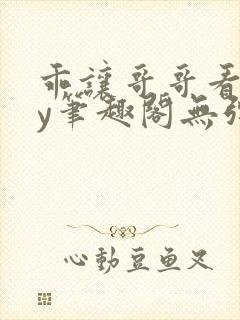 乖讓哥哥看
y筆趣閣無
心動豆魚又